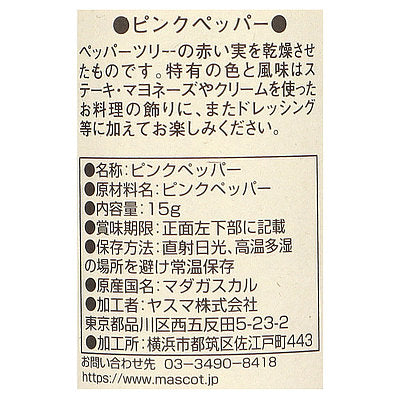 ●ピンクペッパー●
ペッパーツリーの赤い実を乾燥させ
たものです。特有の色と風味はス
テーキ・マヨネーズやクリームを使った
お料理の飾りに、またドレッシング
等に加えてお楽しみください。
●名称:ピンクペッパー
●原材料名:ピンクペッパー
●内容量:15g
●賞味期限:正面左下部に記載
●保存方法:直射日光、高温多湿
の場所を避け常温保存
●原産国名:マダガスカル
●加工者:ヤスマ株式会社
東京都品川区西五反田5-23-2
●加工所:横浜市都筑区佐江戸町443
お問い合わせ先 03-3490-8418
https://www.mascot.jp